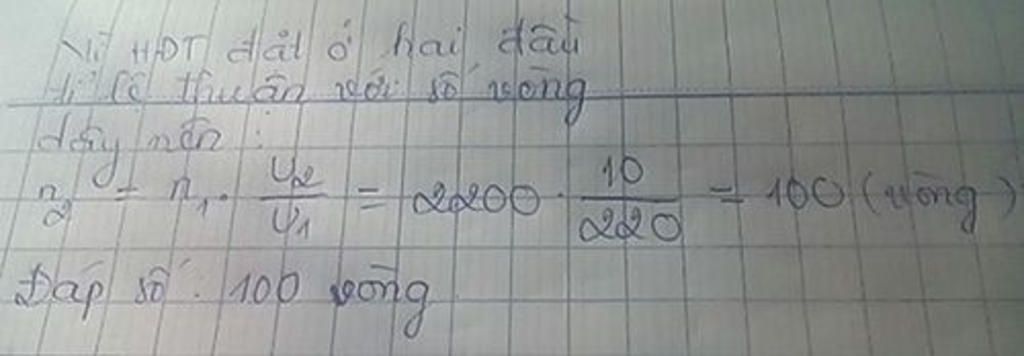 Vì HĐT đặt ở hai đầu
tỉ lệ thuận với số vòng
dây nên :
n₂ = n₁ . U₂/U₁ = 2200 . 10/220 = 100 (vòng)
Đáp số : 100 vòng